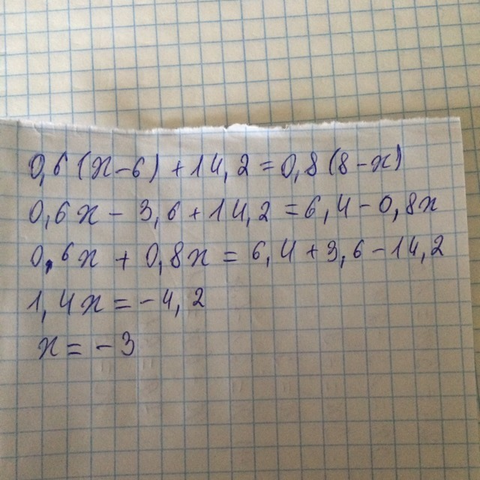 0,6(x-6)+14,2=0,8(8-x)
0,6x-3,6+14,2=6,4-0,8x
0,6x+0,8x=6,4+3,6-14,2
1,4x=-4,2
x=-3